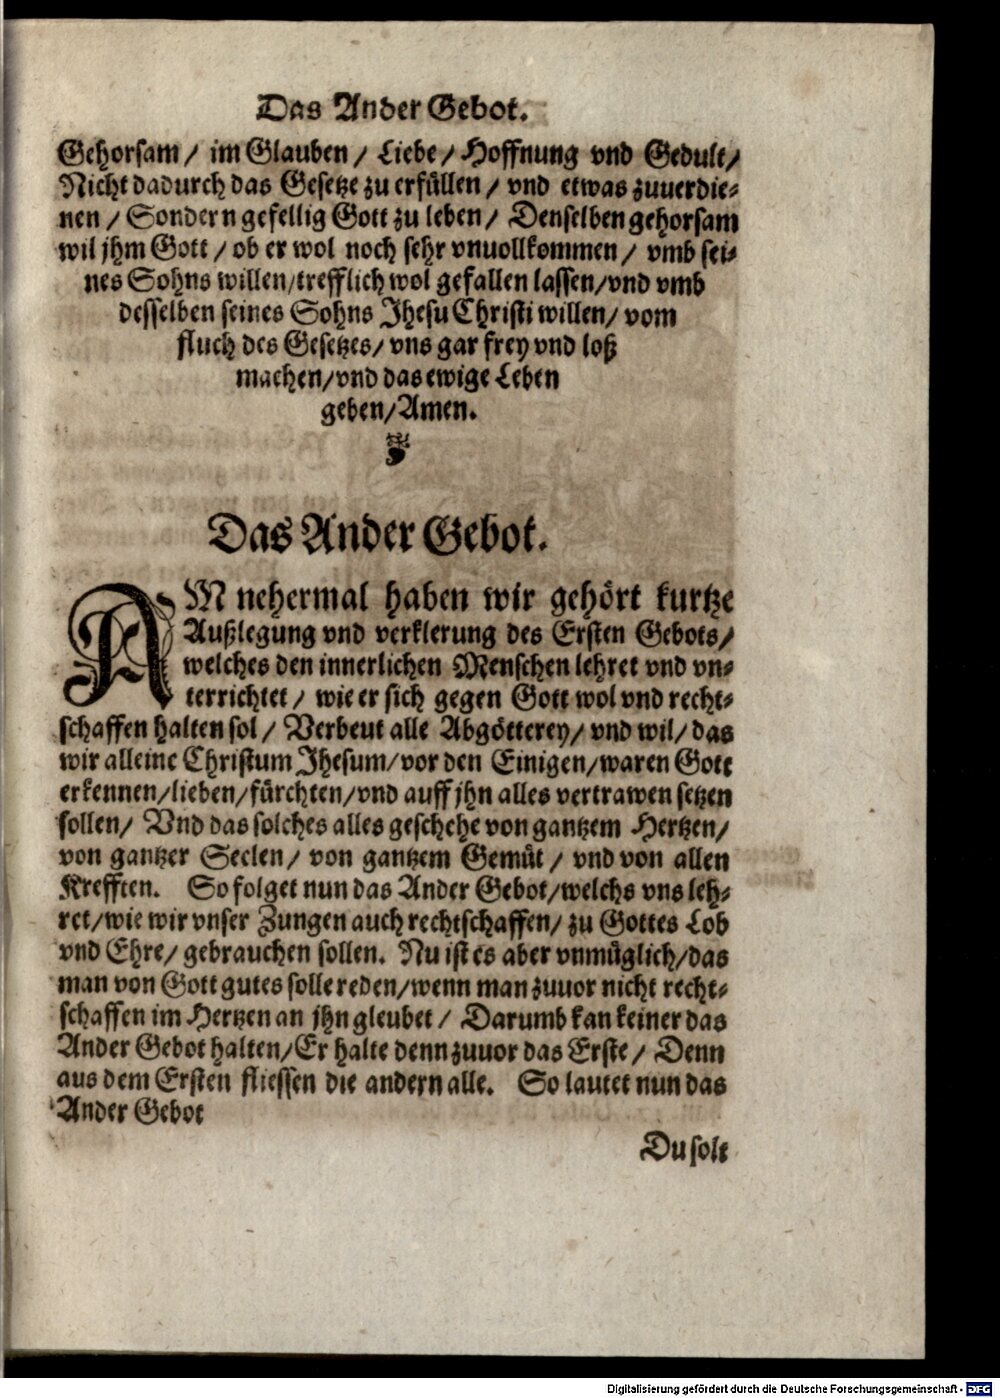 Das Ander Gebot.
Gehorsam / im Glauben / Liebe / Hoffnung vnd Gedult /
Nicht dadurch das Gesetze zu erfüllen / vnd etwas zuuerdie-
nen / Sondern gefellig Gott zu leben / Denselben gehorsam
wil jhm Gott / ob er wol noch sehr vnuollkommen / vmb sei-
nes Sohns willen / trefflich wol gefallen lassen / vnd vmb
desselben seines Sohns Jhesu Christi willen / vom
fluch des Gesetzes / vns gar frey vnd loß
machen / vnd das ewige Leben
geben / Amen.
Das Ander Gebot.
AM nehermal haben wir gehört kurtze
Außlegung vnd verklerung des Ersten Gebots /
welches den innerlichen Menschen lehret vnd vn-
terrichtet / wie er sich gegen Gott wol vnd recht-
schaffen halten sol / Verbeut alle Abgötterey / vnd wil / das
wir alleine Christum Jhesum / vor den Einigen / waren Gott
erkennen / lieben / fürchten / vnd auff jhn alles vertrawen setzen
sollen / Vnd das solches alles geschehe von gantzem Hertzen /
von gantzer Seelen / von gantzem Gemüt / vnd von allen
Krefften. So folget nun das Ander Gebot / welchs vns leh-
ret / wie wir vnser Zungen auch rechtschaffen / zu Gottes Lob
vnd Ehre / gebrauchen sollen. Nu ist es aber vnmüglich / das
man von Gott gutes solle reden / wenn man zuuor nicht recht-
schaffen im Hertzen an jhn gleubet / Darumb kan keiner das
Ander Gebot halten / Er halte denn zuuor das Erste / Denn
aus dem Ersten fliessen die andern alle. So lautet nun das
Ander Gebot
Du solt
Digitalisierung gefördert durch die Deutsche Forschungsgemeinschaft - DFG